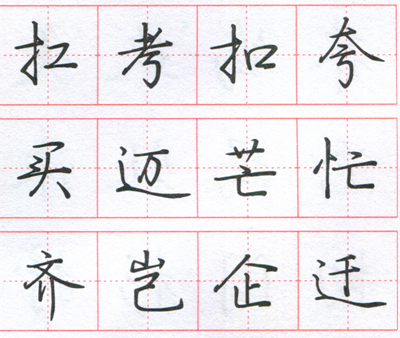 扛考扣夸
买迈芒忙
齐岂企迁